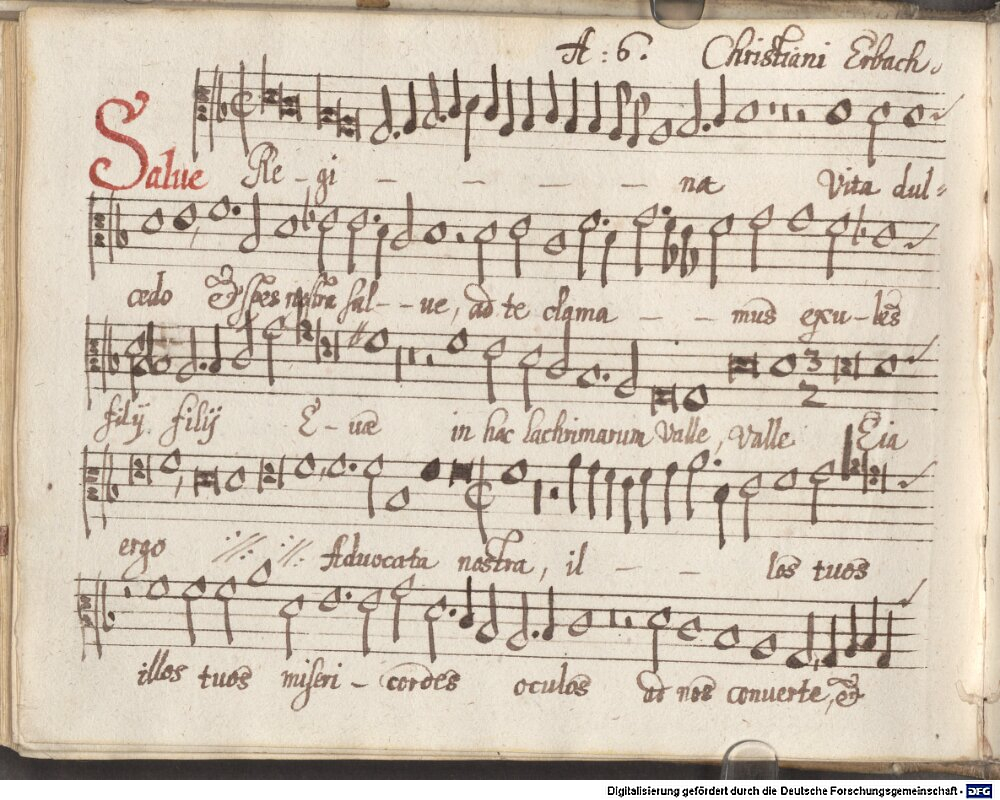 A: 6. Christiani Erbach.
Salve Re - gi - - - - - - na Vita dul=
cedo & spes nostra sal - - ve, ad te clama - - mus exu - les
filij filij E - væ in hac lachrimarum Valle, Valle Eia
3
2
ergo ://: :// : Advocata nostra, il - - los tuos
illos tuos miseri - cordes oculos ad nos converte, &
Digitalisierung gefördert durch die Deutsche Forschungsgemeinschaft - DFG